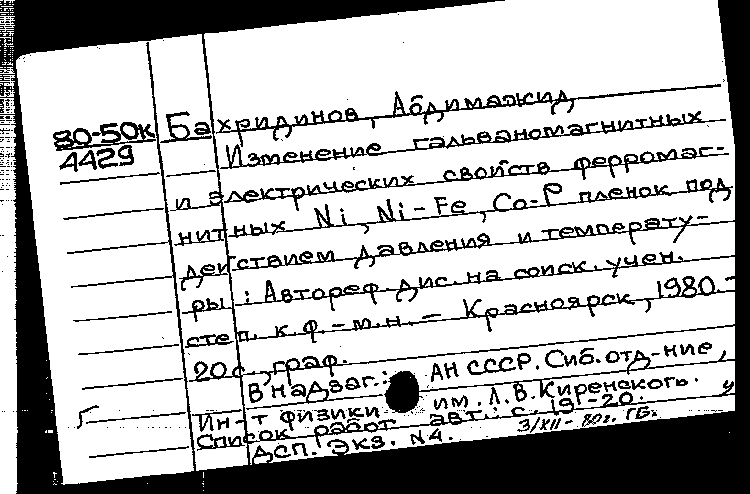 80-50к Бахридинов, Абдимажид
4429 Изменение гальваномагнитных
и электрических свойств ферромаг-
нитных Ni, Ni-Fe, Co-P пленок под
действием давления и температу-
ры: Автореф. дис. на соиск. учен.
степ. к.ф.-м.н. - Красноярск, 1980.-
20с., граф.
В надзаг.: АН СССР. Сиб. отд-ние,
Ин-т физики им. Л.В. Киренского.
Список работ авт.: с. 19-20.
ДСП. Экз. N4. 3/XII-80г. ГБ.